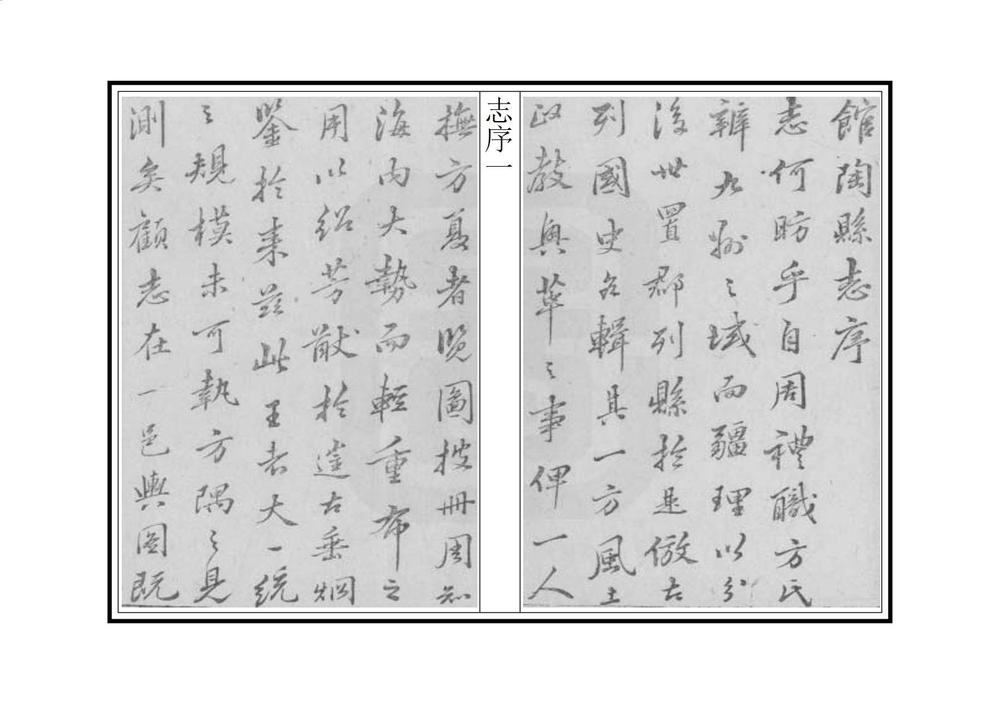 館陶縣志序
志何昉乎自周禮職方氏
辨九州之域而疆理以分
後世置郡列縣於是倣古
列國史名輯其一方風土
政教興革之事俾一人
撫方夏者覽圖披冊周知
海內大勢而輕重布之
用以紹芳猷於邃古垂烱
鑒於來茲此王者大一統
之規模未可執方隅之見
測矣顧志在一邑輿圖既
志序一